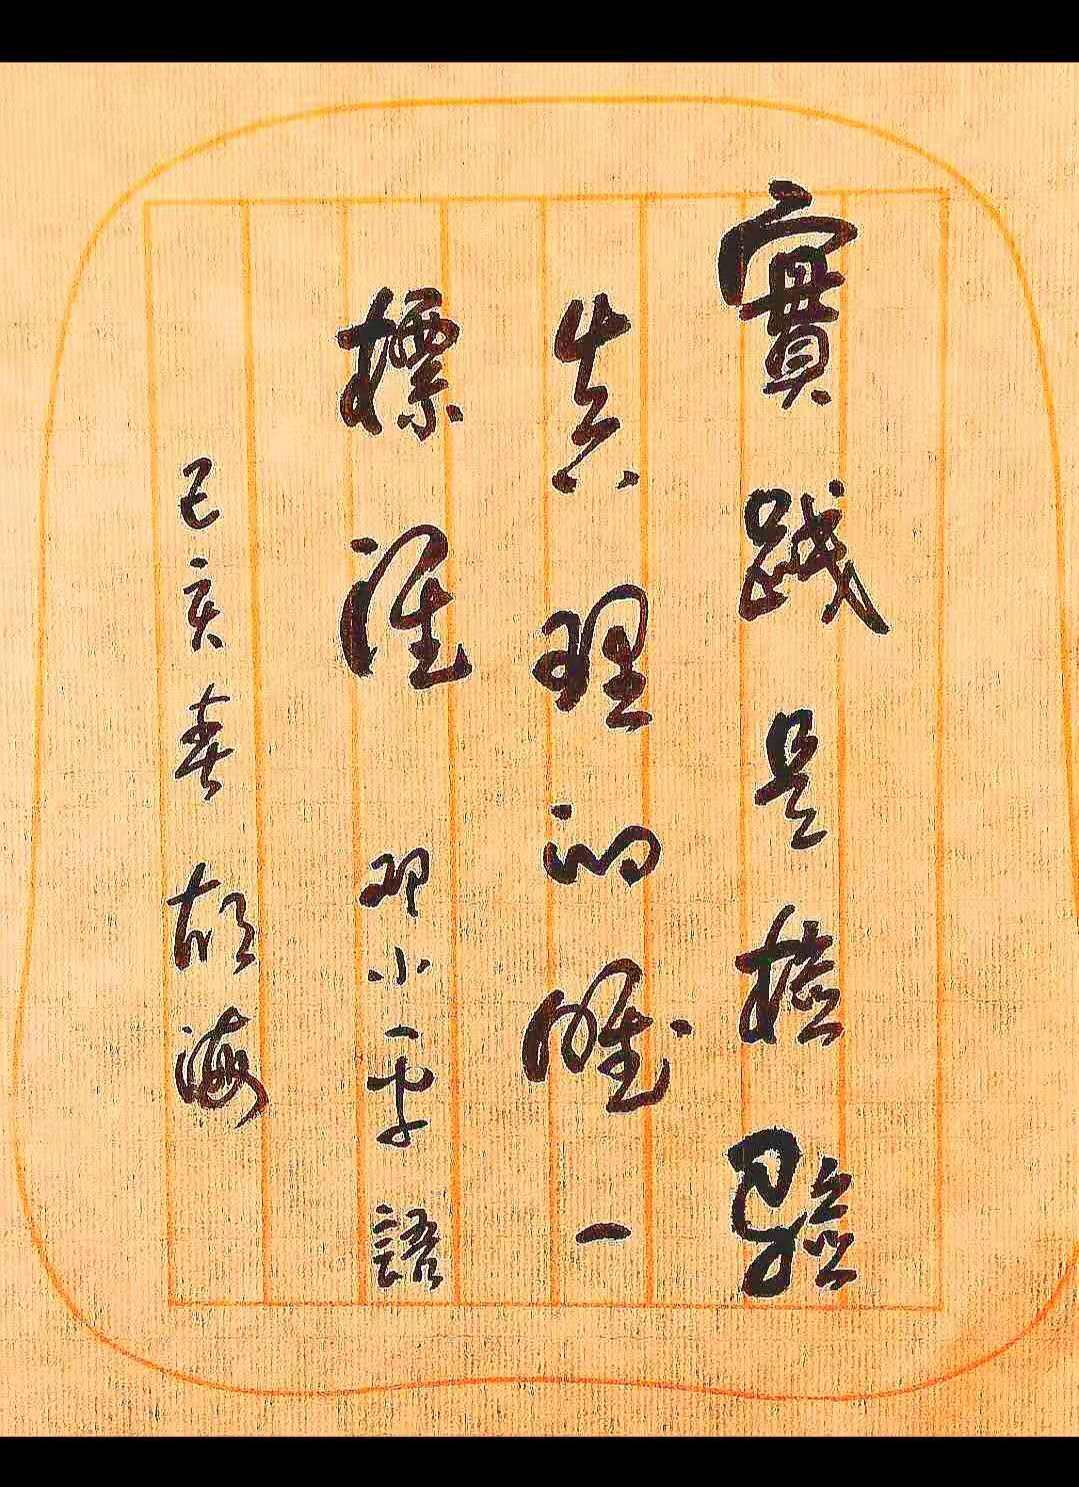 實踐是撿驗
真理的唯一
標準 邓小平語
己亥春 胡海